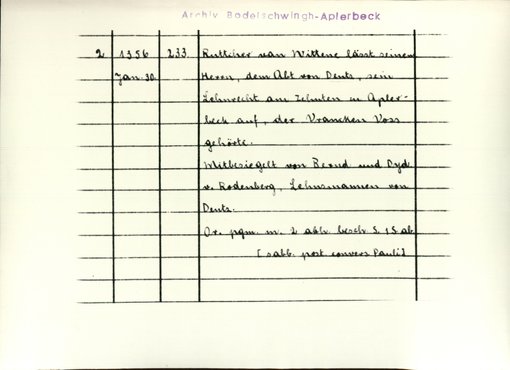 Archiv Bodelschwingh-Aplerbeck
2 1356 233. Rutticher van Wittene lässt seinem
Jan. 30. Herren, dem Abt von Deutz, sein
Lehnrecht am Zehnten in Apler-
beck auf, der Vrancken Voss
gehörte.
Mitbesiegelt von Bernd und Dyd.
v. Rodenberg, Lehnsmannen von
Deutz.
Or. pgm. m. 2 abh. besch. S. 1 S. ab
[sabb. post convers Pauli]